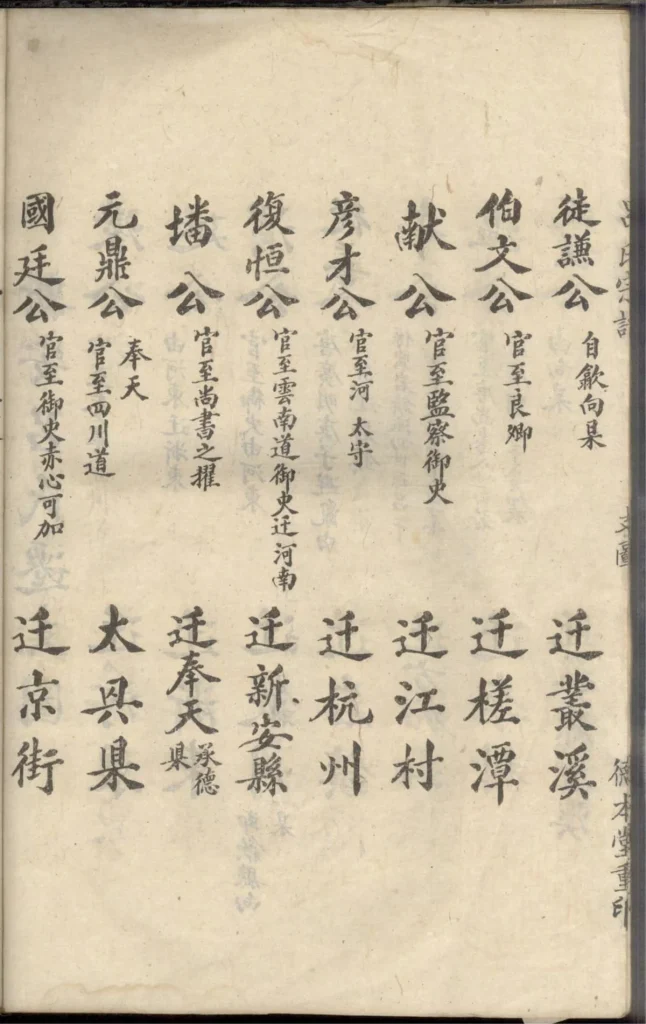 呂氏宗譜
支圖
德本堂重印
徒謙公 自歙向杲 迁叢溪
伯文公 官至良卿 迁槎潭
献公 官至監察御史 迁江村
彦才公 官至河 太守 迁杭州
復恒公 官至雲南道御史迁河南 迁新安縣
墦公 官至尚書之擢 迁奉天承德杲
元鼎公 奉天 官至四川道 太具杲
國廷公 官至御史赤心可加 迁京街